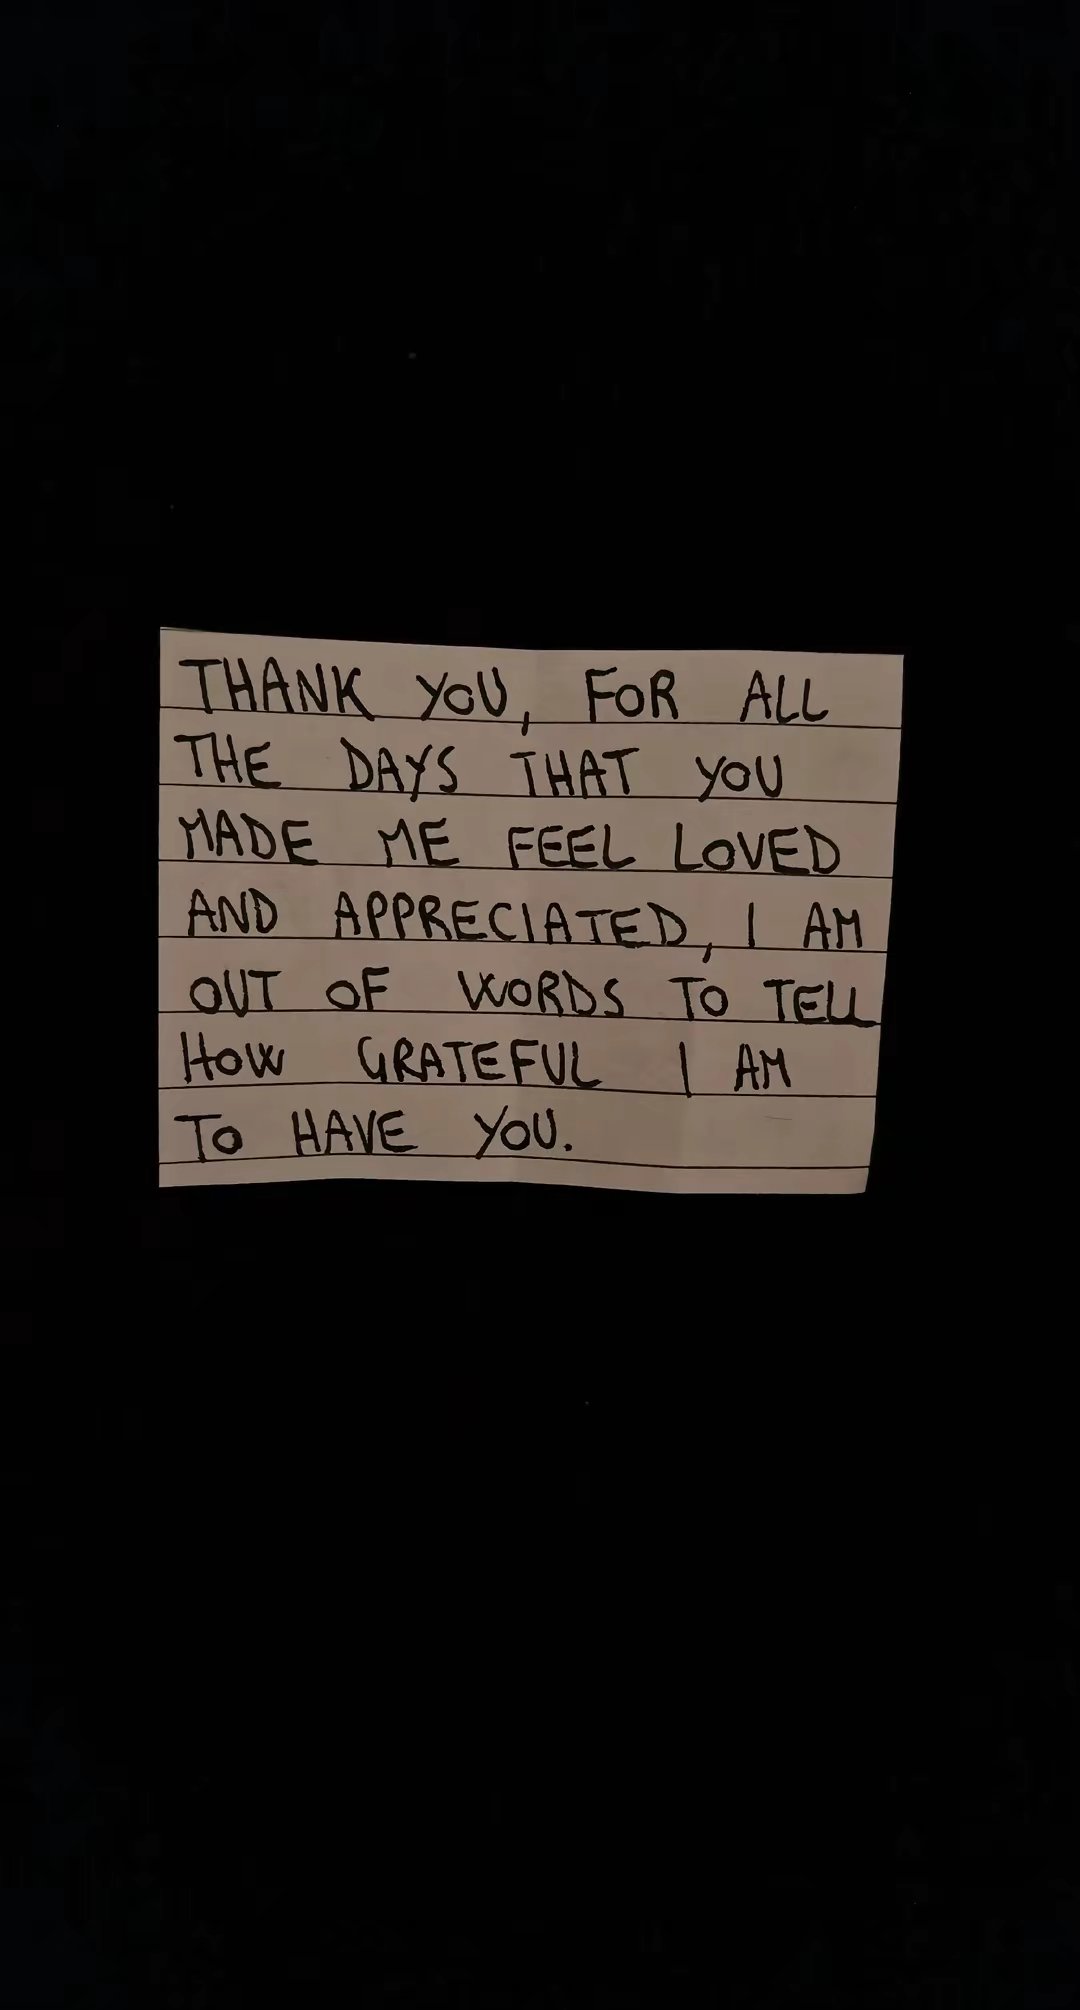 THANK YOU, FOR ALL
THE DAYS THAT YOU
MADE ME FEEL LOVED
AND APPRECIATED, I AM
OUT OF WORDS TO TELL
HOW GRATEFUL I AM
TO HAVE YOU.